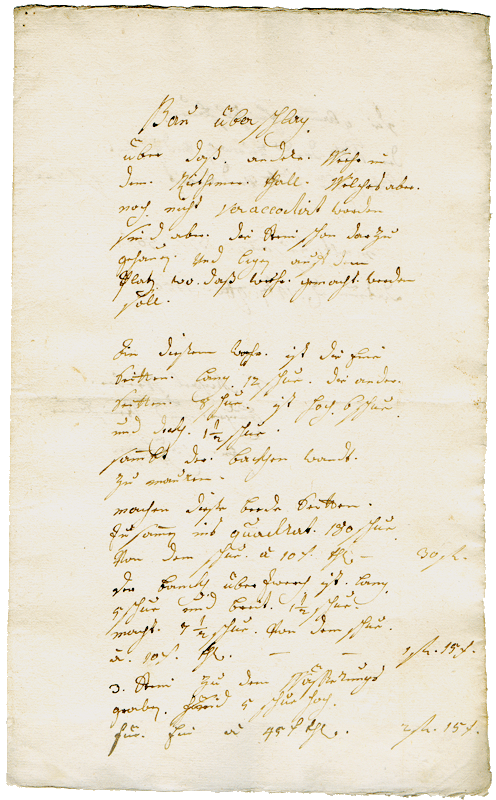 Bau überschlag
über daß. andere. Wehr in
dem. thall. Welches aber.
noch nicht veraccodirt worden
sind aber. die stein schon darzu
gehauen. und ligen auf dem
Platz wo. daß wehr. gemacht werden
soll.
An diesem wehr. ist die eine
Seitten. lang 12 schue. die ander.
Seitten. 8 schue. ist hoch 6 schue
und dick. 1½ schue.
sambt der bachen wandt.
zu mauren.
machen diese beede Seitten.
zusamen ins quadrat. 180 schue
Von dem schue. à 10 x. thl — 30 fl.
der banckh überzwerch ist. lang.
5 schue und breit. 1½ schue.
macht. 7½ schue. Von dem schue.
à. 10 x. thl. — — 1 fl. 15 x.
3. stein zu dem wässerungs
graben. seind 5 schue hoch.
für. ein à 45 x thl. 2 fl. 15 x.